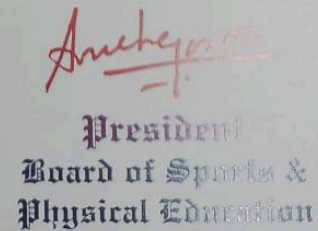 President
Board of Sports &
Physical Education